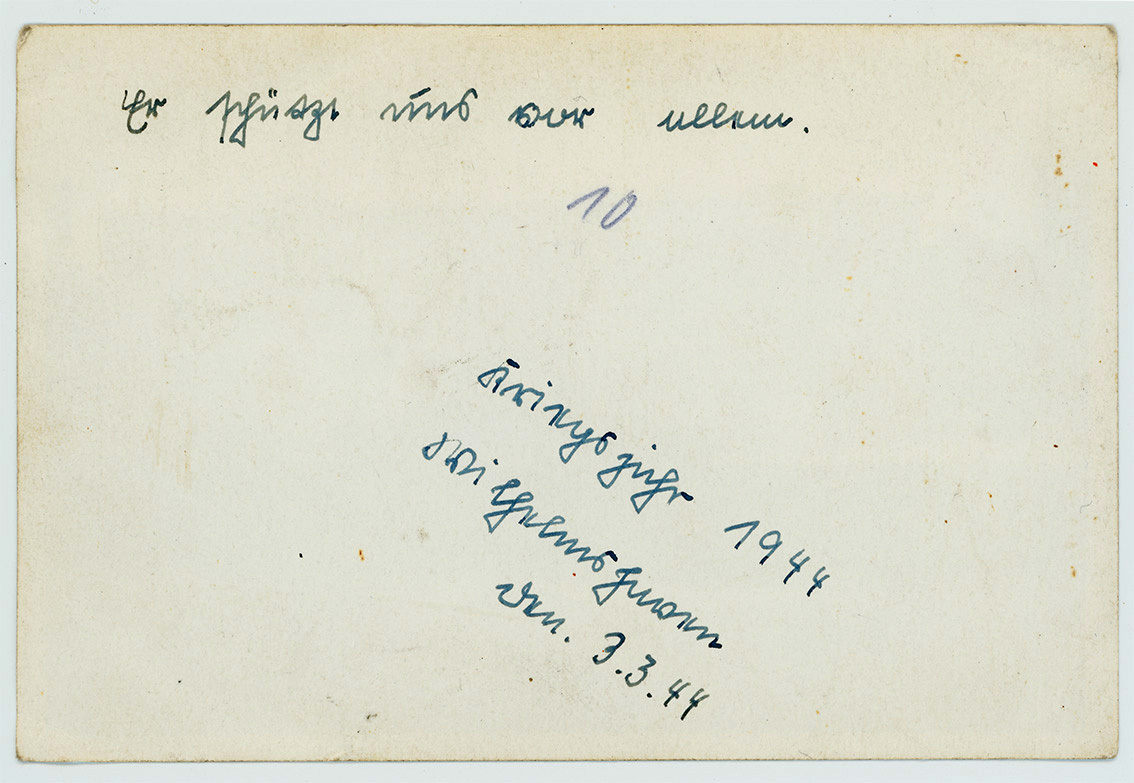 Er schütze uns vor allem.
10
Kriegsjahr 1944
Wilhelmshaven
den. 3.3.44